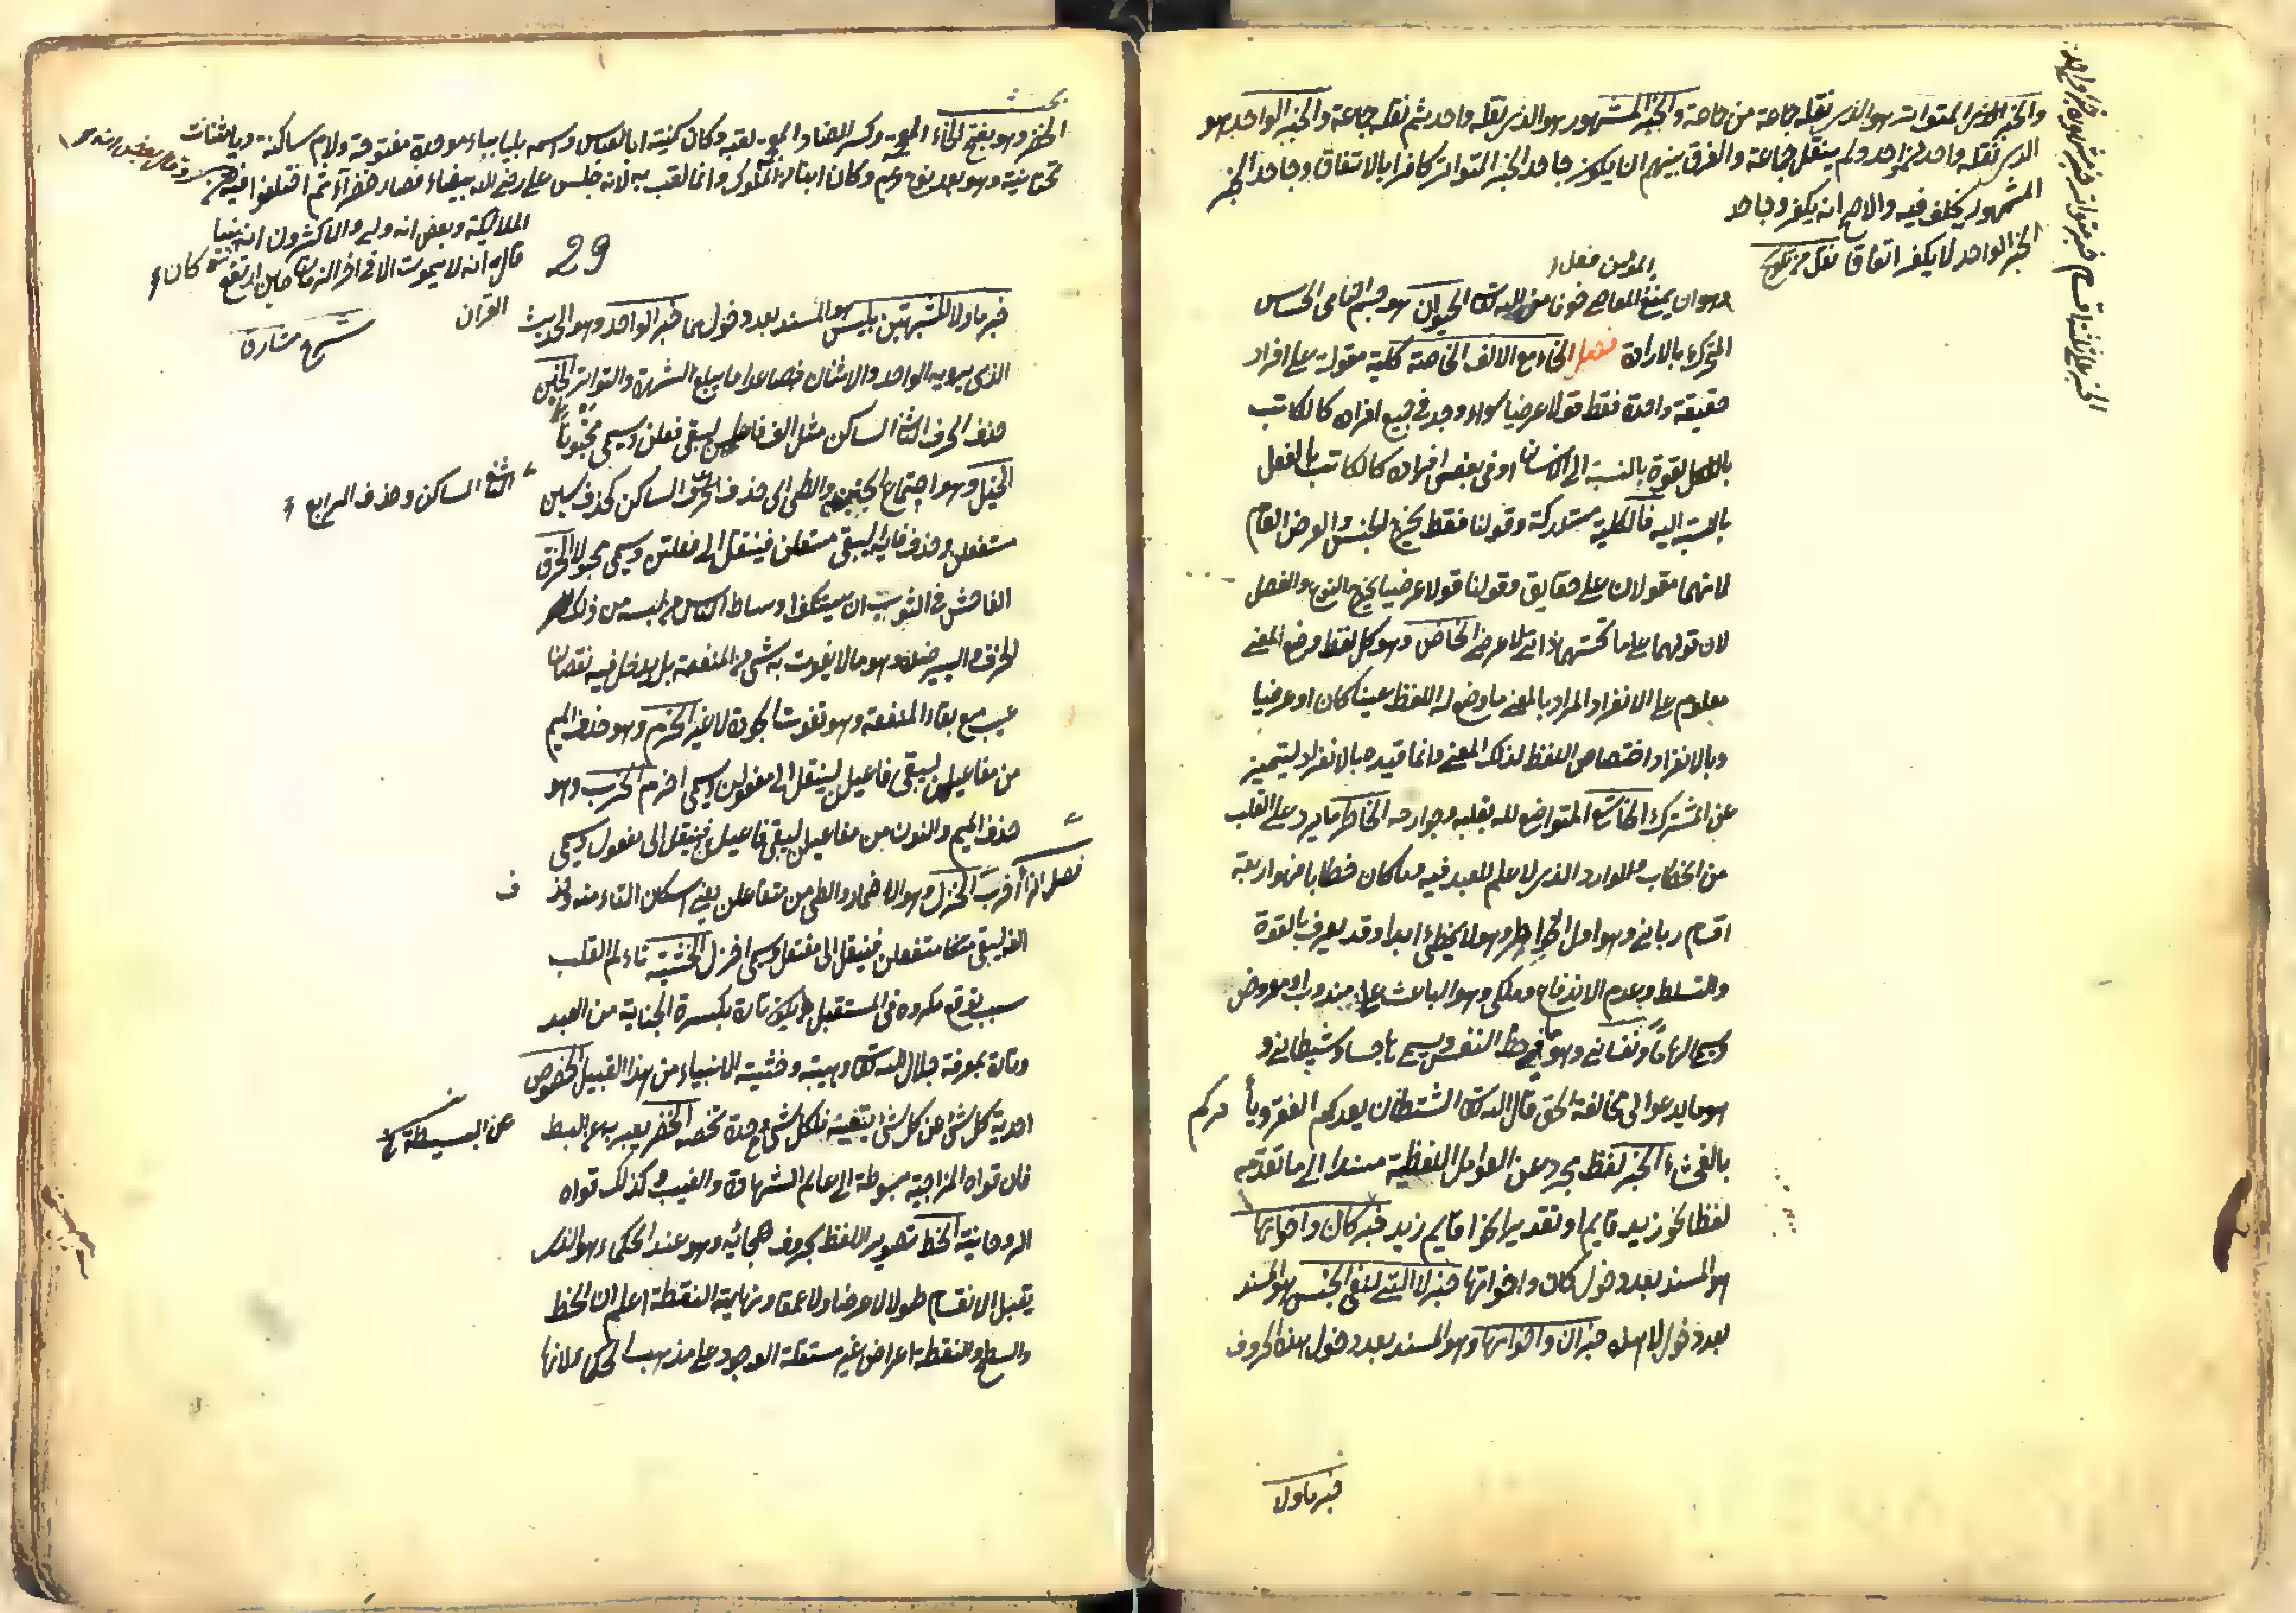 الخبر على ثلثة اقسام خبر متواتر وخبر مشهور وخبر واحد
والخبر المتواتر هو الذى نقله جماعة من جماعة والخبر المشهور هو الذى نقله واحد ثم نقله جماعة والخبر الواحد هو
الذى نقله واحد من واحد ولم ينقل جماعة والفرق بينهم ان يكون جاحد الخبر المتواتر كافرا بالاتفاق وجاحد الخبر
المشهور يختلف فيه والاصح انه يكفر وجاحد
الخبر الواحد لا يكفر اتفاقا نقل من
المؤمن فعل
وهو ان يمنع المعاصى خوفا من الله تعالى الحيوان هو جسم النامى الحساس
المتحرك بالارادة فصل الخاء مع الالف الخاصة كلية مقولة على افراد
حقيقة واحدة فقط قولا عرضيا سواء وجد فى جميع افراده كالكاتب
بالقوة بالنسبة الى الانسان او فى بعض افراده كالكاتب بالفعل
بالنسبة اليه فالكلية مستدركة وقولنا فقط يخرج الجنس والعرض العام
لانهما مقولان على حقايق وقولنا قولا عرضيا يخرج النوع والفصل
لان قولهما على ما تحتهما ذاتى لا عرضى الخاص وهو كل لفظ وضع لمعنى
معلوم على الانفراد المراد بالمعنى ما وضع له اللفظ عينا كان او عرضيا
وبالانفراد اختصاص اللفظ لذلك المعنى وانما قيده بالانفراد ليتميز
عن المشترك الخاشع المتواضع لله بقلبه وجوارحه الخاطر ما يرد على القلب
من الخطاب او الوارد الذى لا عمل للعبد فيه وما كان خطابا فهو اربعة
اقسام ربانى وهو اول الخواطر وهو لا يخطئ ابدا وقد يعرف بالقوة
والتسلط وعدم الاندفاع وملكى وهو الباعث على مندوب او مفروض
ويسمى الهاما ونفسانى وهو ما فيه حظ النفس ويسمى هاجسا وشيطانى و
هو ما يدعو الى مخالفة الحق قال الله تعالى الشيطان يعدكم الفقر ويأمركم
بالفحشاء الخبر لفظ مجرد عن العوامل اللفظية مسند الى ما تقدمه
لفظا نحو زيد قايم او تقديرا نحو اقايم زيد خبر كان واخواتها
هو المسند بعد دخول كان واخواتها خبر لا التى لنفى الجنس هو المسند
بعد دخول لا هذه خبر ان واخواتها وهو المسند بعد دخول هذه الحروف
خبر ما ولا
بحث
الخضر وهو بفتح الخاء المعجمة وكسر الضاد المعجمة لقبه وكان كنيته ابا العباس واسمه بليا بباء موحدة مفتوحة ولام ساكنة وياء مثناة
تحتانية وهو بعد نوح وكان ابناء الملوك وانما لقب به لانه جلس على ارض بيضاء فصار خضراء ثم اختلفوا فيه
الملائكة وبعض انه ولى والاكثرون انه نبيا
قال انه لا يموت الا فى اخر الزمان حين ارتفع
القرآن
شرح مشارق
29
خبر ما ولا المشبهتين بليس هو المسند بعد دخولهما خبر الواحد وهو الحديث
الذى يرويه الواحد والاثنان فصاعدا ما يبلغ الشهرة والتواتر الخبن
حذف الحرف الثانى الساكن مثل الف فاعلن ليبقى فعلن ويسمى مخبونا
الخبل وهو اجتماع الخبن والطى اى حذف الحرف الثانى الساكن كحذف سين
الساكن وحذف الرابع
مستفعلن وحذف فائه ليبقى متعلن فينقل الى فعلتن ويسمى مخبولا الخرق
الفاحش فى الثوب ان يستنكف اوساط الناس من لبسه من ذلك
الخرق واليسير ضده وهو ما لا يفوت به شئ من المنفعة بل يدخل فيه نقصان
عيب مع بقاء المنفعة وهو تفويت الجودة لا غير الخرم وهو حذف الميم
من مفاعيلن ليبقى فاعيلن لينقل الى مفعولن ويسمى اخرم الخرب وهو
حذف الميم والنون من مفاعيلن ليبقى فاعيل فينقل الى مفعول ويسمى
فصل الزا اخرب الخزل وهو الاضمار والطى من متفاعلن يعنى اسكان التاء منه وحذف
الفه ليبقى متفعلن فينقل الى مفتعلن ويسمى اخزل الخشية تألم القلب
بسبب توقع مكروه فى المستقبل يكون تارة بكسرة الجناية من العبد
وتارة بمعرفة جلال الله تعالى وهيبته وخشية الانبياء من هذا القبيل الخصوص
احدية كل شئ عن كل شئ بتعينه فلكل شئ وحدة تخصه الخضر يعبر به عن البسط
عن البسيطة نخ
فان قواه المزاجية مبسوطة الى عالم الشهادة والغيب وكذلك قواه
الروحانية الخط تصوير اللفظ بحروف هجائية وهو عند الحكماء هو الذى
يقبل الانقسام طولا لا عرضا ولا عمقا ونهايته النقطة اعلم ان الخط
والسطح والنقطة اعراض غير مستقلة الوجود على مذهب الحكماء لانها